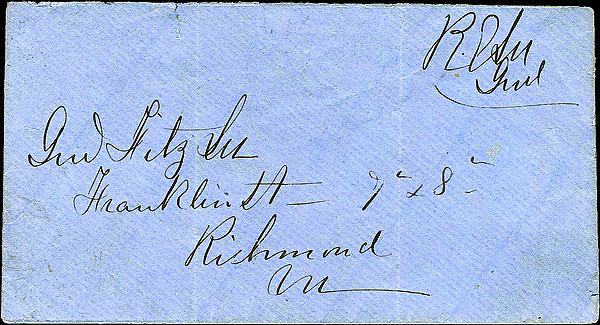 R. E. Lee
Genl
Genl Fitz Lee
Franklin St — 7th & 8th
Richmond
Va